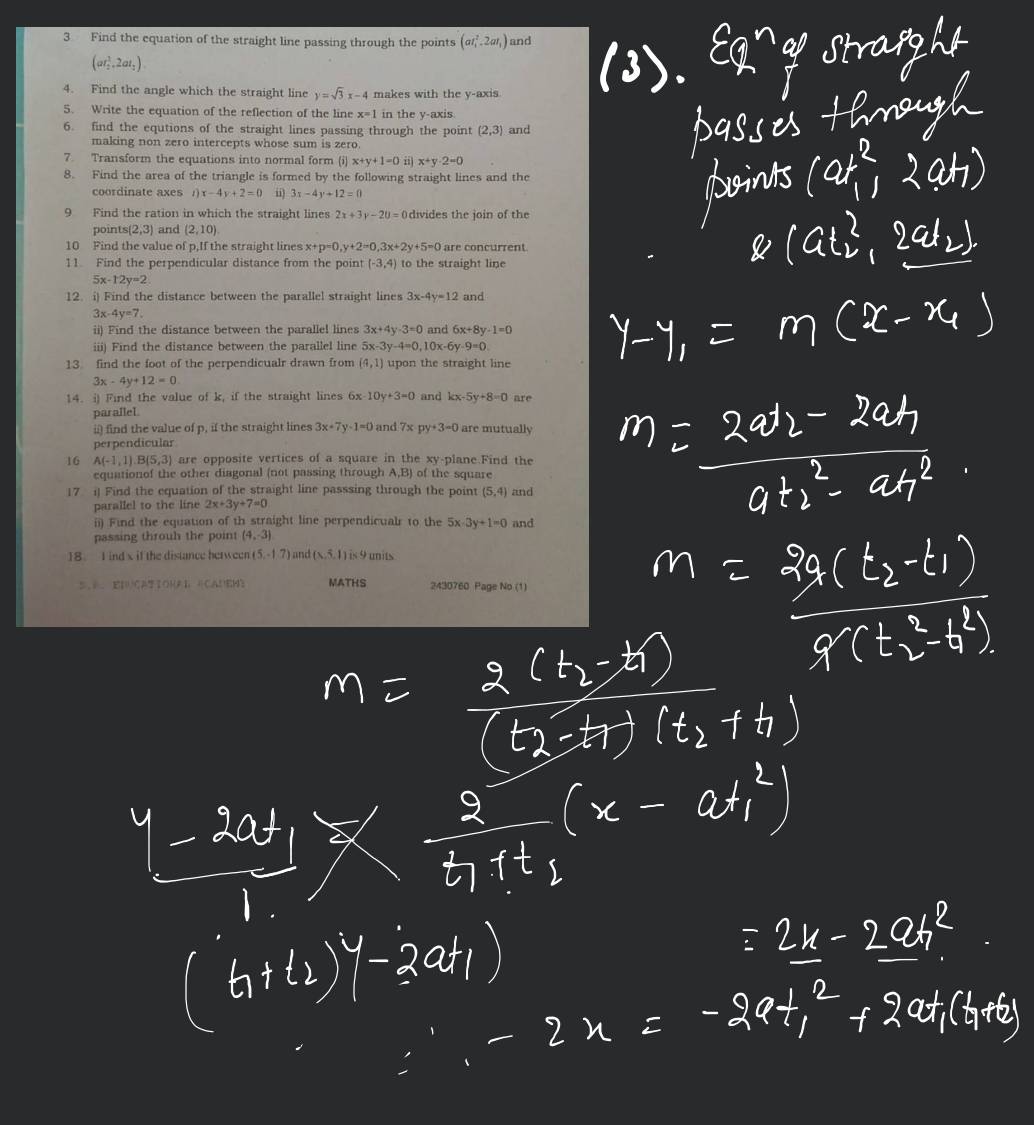 3. Find the equation of the straight line passing through the points (at₁², 2at₁) and
(at₂², 2at₂).
4. Find the angle which the straight line y=√3 x-4 makes with the y-axis.
5. Write the equation of the reflection of the line x=1 in the y-axis.
6. find the equtions of the straight lines passing through the point (2,3) and
making non zero intercepts whose sum is zero.
7. Transform the equations into normal form (i) x+y+1=0 ii) x+y-2=0
8. Find the area of the triangle is formed by the following straight lines and the
coordinate axes i) x-4y+2=0 ii) 3x-4y+12=0
9. Find the ration in which the straight lines 2x+3y-20=0 divides the join of the
points(2,3) and (2,10).
10 Find the value of p,If the straight lines x+p=0,y+2=0,3x+2y+5=0 are concurrent.
11. Find the perpendicular distance from the point (-3,4) to the straight line
5x-12y=2.
12. i) Find the distance between the parallel straight lines 3x-4y=12 and
3x-4y=7.
ii) Find the distance between the parallel lines 3x+4y-3=0 and 6x+8y-1=0
iii) Find the distance between the parallel line 5x-3y-4=0,10x-6y-9=0.
13. find the foot of the perpendicualr drawn from (4,1) upon the straight line
3x - 4y+12 = 0.
14. i) Find the value of k, if the straight lines 6x-10y+3=0 and kx-5y+8=0 are
parallel.
ii) find the value of p, if the straight lines 3x+7y-1=0 and 7x py+3=0 are mutually
perpendicular
16 A(-1,1).B(5,3) are opposite vertices of a square in the xy-plane.Find the
equationof the other diagonal (not passing through A,B) of the square
17. i) Find the equation of the straight line passsing through the point (5,4) and
parallel to the line 2x+3y+7=0
ii) Find the equation of th straight line perpendicualr to the 5x-3y+1=0 and
passing throuh the point (4,-3).
18. Find x if the distance between (5,-1,7) and (x,5,1) is 9 units
S.R. EDUCATIONAL ACADEMY MATHS 2430760 Page No (1)
(3). Eqⁿ of straight
passes through
points (at₁², 2at₁)
& (at₂², 2at₂).
y-y₁ = m(x-x₁)
m = 2at₂ - 2at₁
at₂² - at₁².
m = 2a(t₂-t₁)
a(t₂²-t₁²).
m = 2(t₂-t₁)
(t₂-t₁)(t₂+t₁)
y-2at₁ = 2 (x - at₁²)
1. t₁+t₂
(t₁+t₂)y-2at₁) = 2x-2at₁².
-2x = -2at₁² + 2at₁(t₁+t₂)